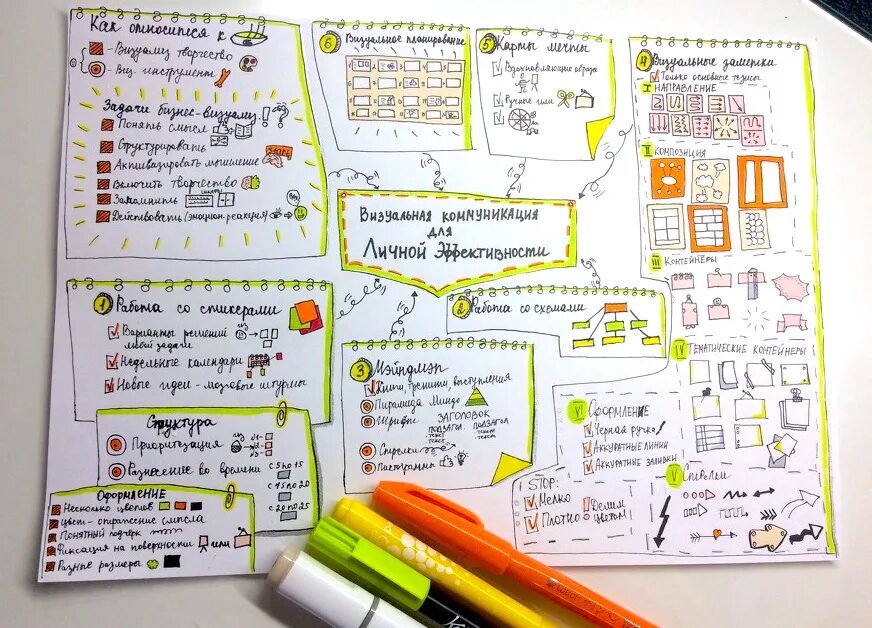 Как относиться к
- Визуализ творчество
- Виз. инструмент
Задачи бизнес-визуализ.
Понять смысл
Структурировать
Активизировать мышление
Start
Включить творчество
Запомнить
Действовать (эмоцион. реакция)
6 Визуальное планирование
5 Карты мечты
Вдохновляющие образы
Ручные или
4 Визуальные заметки
Только основные тезисы
I НАПРАВЛЕНИЕ
II КОМПОЗИЦИЯ
III КОНТЕЙНЕРЫ
IV ТЕМАТИЧЕСКИЕ КОНТЕЙНЕРЫ
V Стрелки
VI ОФОРМЛЕНИЕ
Черная ручка
Аккуратные линии
Аккуратные заливки
STOP:
Мелко
Плотно
Делим цветом
Визуальная коммуникация
для
Личной Эффективности
1 Работа со стикерами
Варианты решений
любой задачи
Недельные календари
Новые идеи - мозговые штурмы
Структура
Приоритизация
Разнесение во времени
С 5 по 15
С 15 по 20
С 20 по 25
ОФОРМЛЕНИЕ
Несколько цветов
Цвет - отражение смысла
Понятный подчерк
Фиксация на поверхности или
Разные размеры
2 Работа со схемами
3 Мэйндмэп
Книги, тренинги, выступления
Пирамида Минто
Шрифт ЗАГОЛОВОК
ПОДЗАГОЛ. ПОДЗАГОЛ
текст текст
текст текст
Стрелки
Пиктограммы